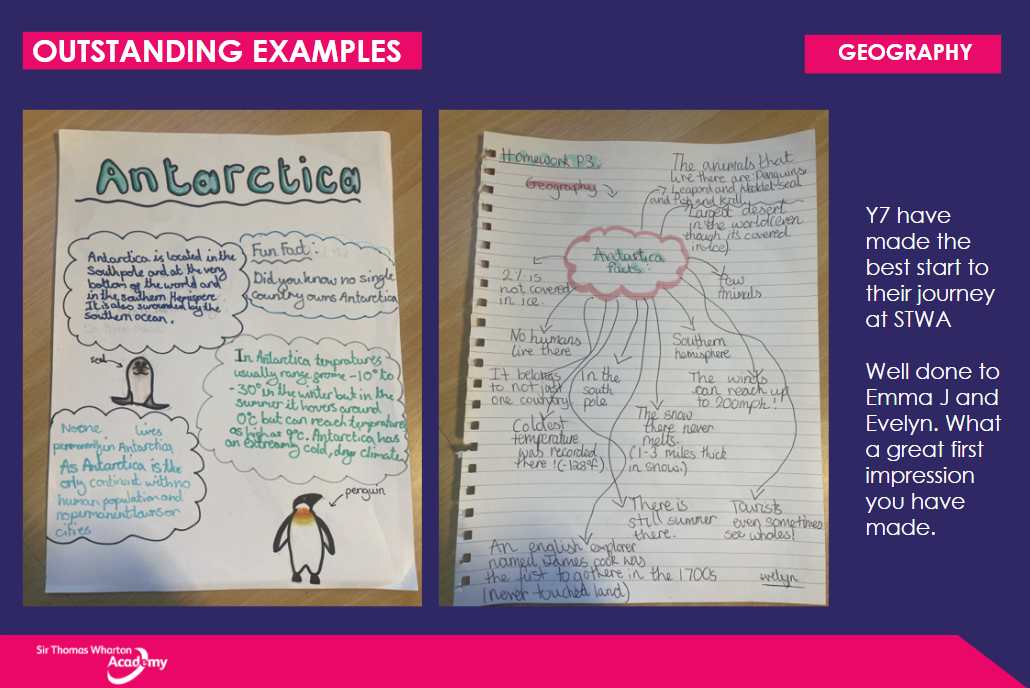 OUTSTANDING EXAMPLES
GEOGRAPHY
Antarctica
Antarctica is located in the
Southpole and at the very
bottom of the world and
in the southern Hemispere
It is also surounded by the
southern ocean.
Fun Fact:
Did you know no single
country owns Antarctica
seal
In Antarctica tempratures
usually range frome -10° to
-30° in the winter but in the
summer it hovers around
0°c but can reach temperatures
as high as 9°c. Antarctica has
an extreamly cold, dry climate.
No one lives
permanently in Antarctica
As Antarctica is the
only continent with no
human population and
no permanent towns or
cities
penguin
Homework P3.
Geography
The animals that
live there are: Penguins
Leapord and Weddel seal
and Fish and krill
Largest desert
in the world (even
though its covered
in ice).
Antartica
facts:
2% is
not covered
in ice.
few
Animals
No humans
live there
Southern
hemisphere
It belongs
to not just
one country
In the
south
pole
The winds
can reach up
to 200mph!
Coldest
temperature
was recorded
there! (-128°f)
The snow
there never
melts.
(1-3 miles thick
in snow.)
There is
still summer
there.
Tourists
even sometimes
see whales!
An english explorer
named James cook was
the first to go there in the 1700s
(never touched land)
evelyn
Y7 have
made the
best start to
their journey
at STWA
Well done to
Emma J and
Evelyn. What
a great first
impression
you have
made.
Sir Thomas Wharton
Academy